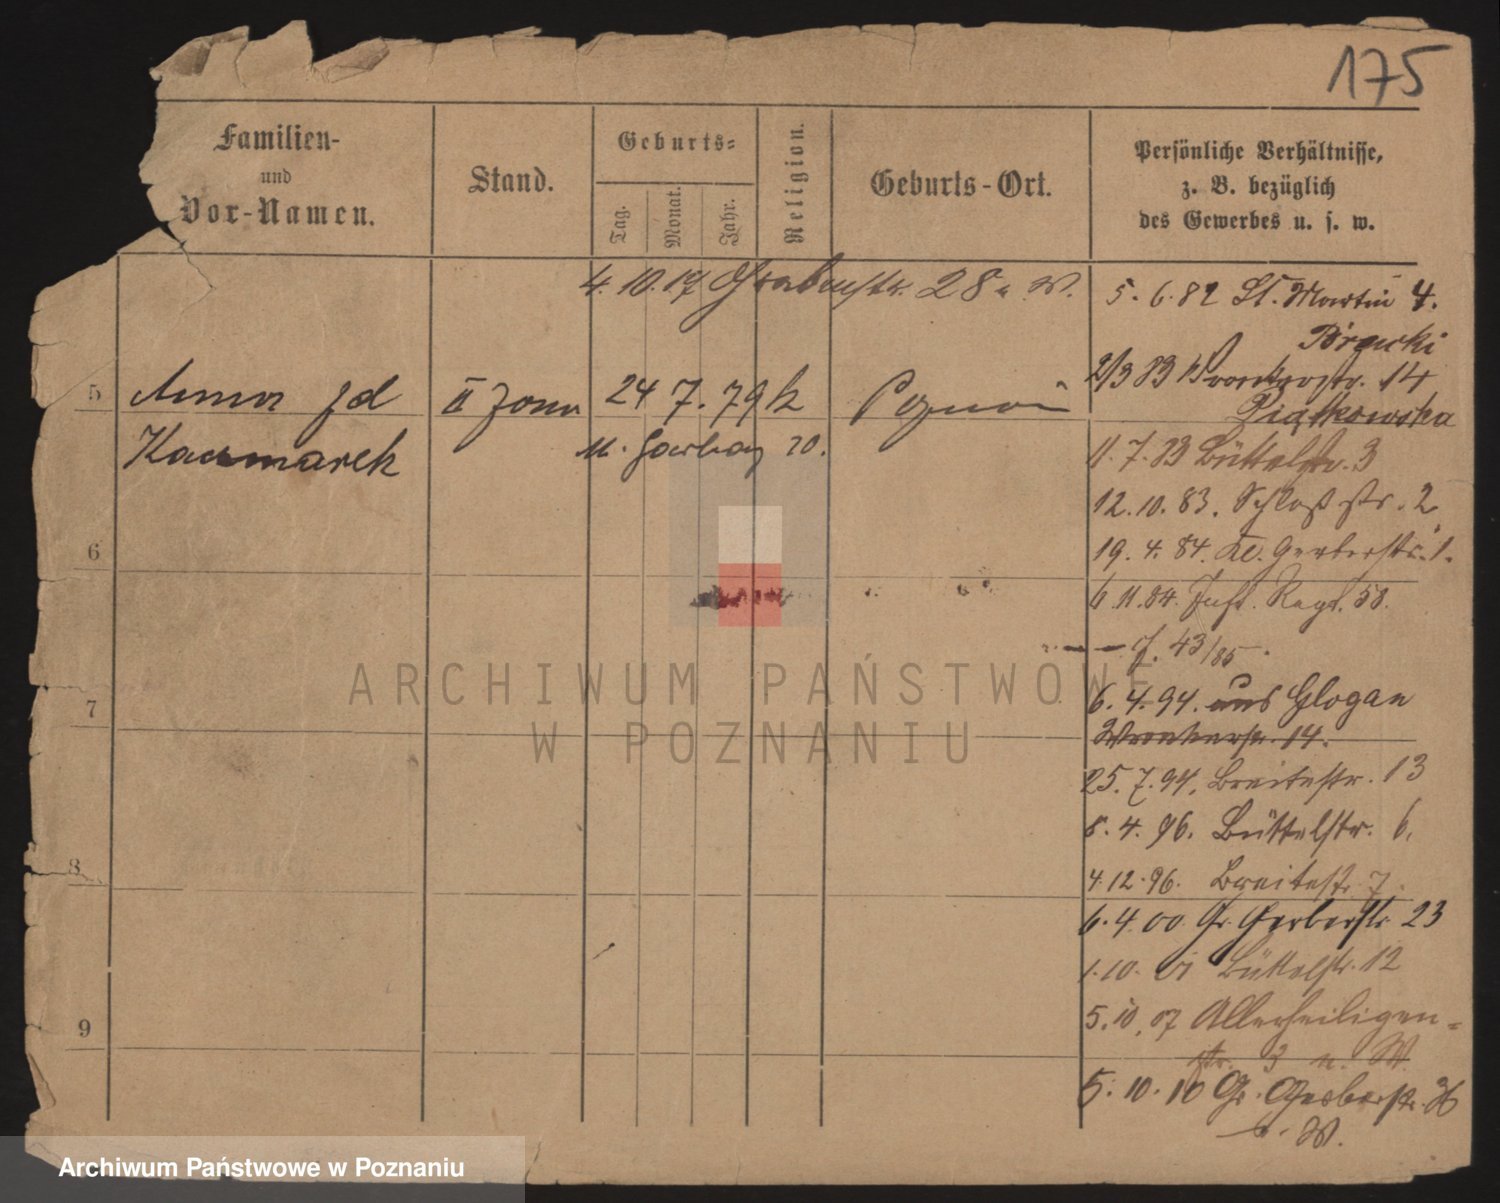 175
Familien-
und
Vor-Namen.
Stand.
Geburts-
Tag.
Monat.
Jahr.
Religion.
Geburts-Ort.
Persönliche Verhältnisse,
z. B. bezüglich
des Gewerbes u. s. w.
4. 10. 17 Grabenstr. 28 u. W.
5. 6. 82 St. Martin 4.
2/3 83 Wronkerstr. 14
Piątkowska
5 Anna II 24 7. 79 k
Kaczmarek 20.
11. 7. 83 Büttelstr. 3
12. 10. 83. Schloßstr. 2
6
19. 4. 84. Kl. Gerberstr. 1.
6 11. 84. Inft. Regt. 58.
J. 43/85
7
6. 4. 94. aus Glogau
Wronkerstr. 14.
25. 7. 94. Breitestr. 13
8. 4. 96. Büttelstr. 6.
8
4. 12. 96. Breitestr. 7.
6. 4. 00 Gr. Gerberstr. 23
1. 10. 01 Büttelstr. 12
9
5. 10. 07 Allerheiligen-
str. 3 u. W.
5. 10. 10 Gr. Gerberstr. 36
u. W.
ARCHIWUM PAŃSTWOWE
W POZNANIU
Archiwum Państwowe w Poznaniu